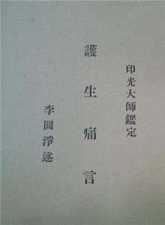 印光大師鑑定
護生痛言
李圓淨述